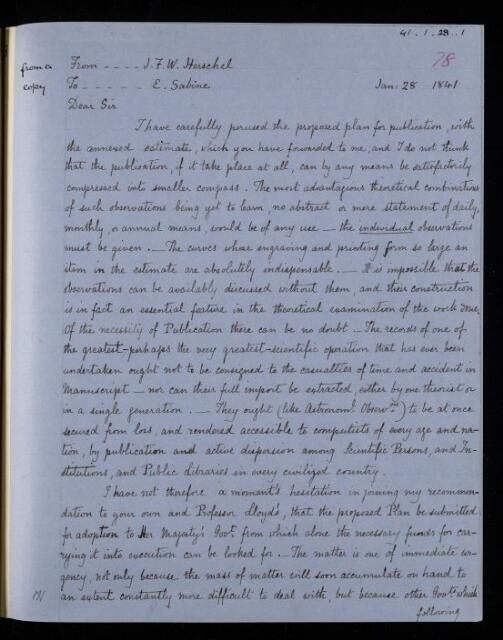 41.1.28..1
78
from a From - - - - J. F. W. Herschel
copy To - - - - - E. Sabine. Jan: 28 1841
Dear Sir
I have carefully perused the proposed plan for publication, with
the annexed estimate, which you have forwarded to me, and I do not think
that the publication, if it take place at all, can by any means be satisfactorily
compressed into smaller compass. The most advantageous theoretical combinations
of such observations being yet to learn, no abstract or mere statement of daily,
monthly, or annual means, would be of any use — the individual observations
must be given. — The curves whose engraving and printing form so large an
item in the estimate are absolutely indispensable. — It is impossible that the
observations can be availably discussed without them, and their construction
is in fact an essential feature in the theoretical examination of the work done.
Of the necessity of Publication there can be no doubt — The records of one of
the greatest—perhaps the very greatest—scientific operation that has ever been
undertaken ought not to be consigned to the casualties of time and accident in
Manuscript — nor can their full import be extracted, either by one theorist or
in a single generation. — They ought (like Astronoml. Observns) to be at once
secured from loss, and rendered accessible to computists of every age and na-
tion, by publication and active dispersion among Scientific Persons, and In-
stitutions, and Public libraries in every civilized country.
I have not therefore a moment's hesitation in joining my recommen-
dation to your own and Professor Lloyd's, that the proposed Plan be submitted
for adoption to Her Majesty's Govt. from which alone the necessary funds for car-
rying it into execution can be looked for. — The matter is one of immediate ur-
gency, not only because the mass of matter will soon accumulate on hand to
an extent constantly more difficult to deal with, but because other Govts. which
following